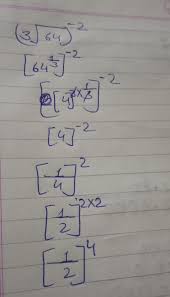 (3√64)^-2
[64^1/3]^-2
[[4]^3×1/3]^-2
[4]^-2
[1/4]^2
[1/2]^-2×2
[1/2]^4